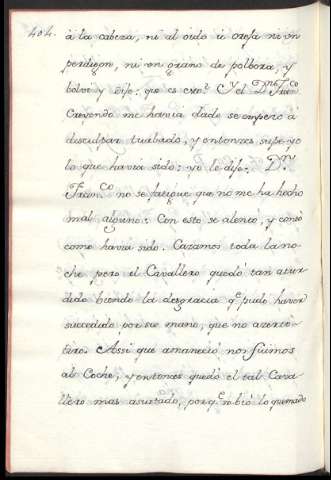 404.
à la cabeza, ni al oido ù oreja ni un
perdigon, ni un grano de polbora, y
bolvì y dije: que es eso? Y el Dn. Franco
Creyendo me havia dado se empezò à
desculpar turbado, y entonces supe yo
lo que havia sido: yo le dije. Dn.
Franco no se fatigue que no me ha hecho
mal alguno: Con esto se alentò, y contò
como havia sido. Cazamos toda la no-
che pero el Cavallero quedò tan atur-
dido biendo la desgracia qe. pudo haver
succedido por su mano, que no azertò
tiro. Assi que amaneciò nos fuimos
al Coche, y entonces quedò el tal Cava-
llero mas asustado, porqe. viò lo quemado